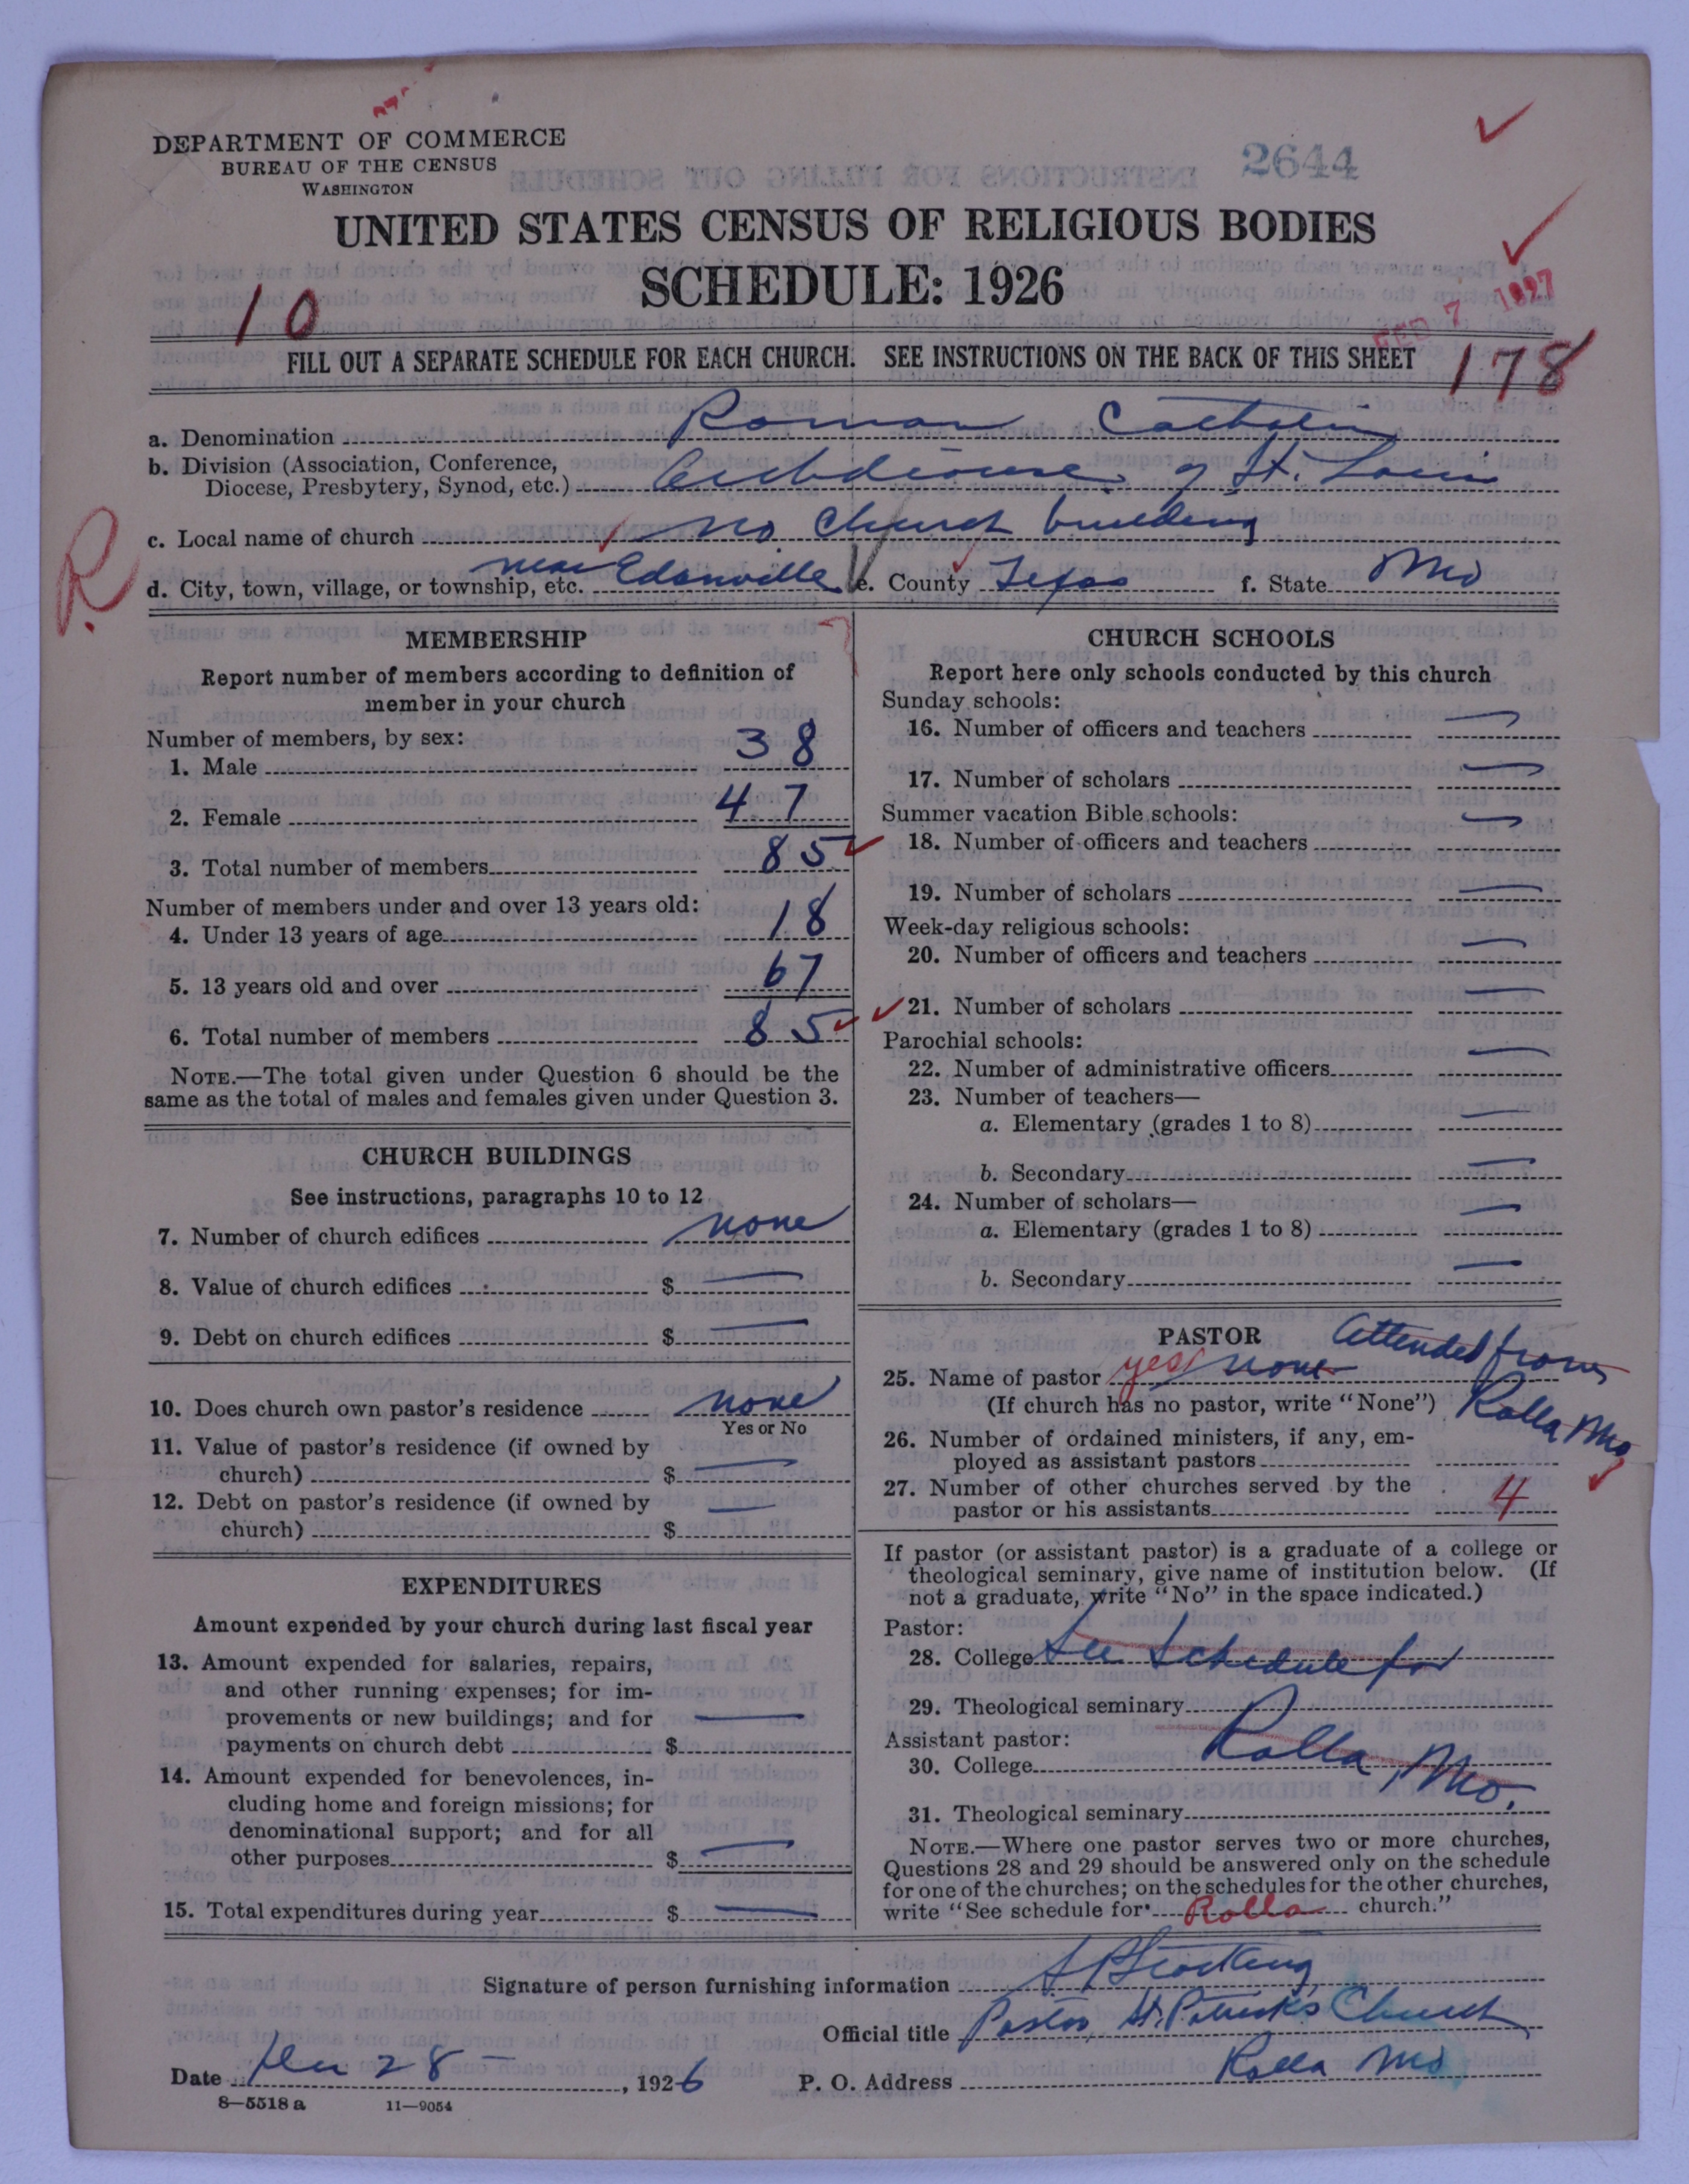 DEPARTMENT OF COMMERCE
BUREAU OF THE CENSUS
WASHINGTON
2644
UNITED STATES CENSUS OF RELIGIOUS BODIES
SCHEDULE: 1926
10
FEB 7 1927
FILL OUT A SEPARATE SCHEDULE FOR EACH CHURCH. SEE INSTRUCTIONS ON THE BACK OF THIS SHEET
178
a. Denomination Roman Catholic
b. Division (Association, Conference,
Diocese, Presbytery, Synod, etc.) Archdiocese of St. Louis
c. Local name of church no church building
R.
d. City, town, village, or township, etc. near Edanville e. County Texas f. State Mo
MEMBERSHIP
Report number of members according to definition of
member in your church
Number of members, by sex:
1. Male 38
2. Female 47
3. Total number of members 85
Number of members under and over 13 years old:
4. Under 13 years of age 18
5. 13 years old and over 67
6. Total number of members 85
NOTE.—The total given under Question 6 should be the
same as the total of males and females given under Question 3.
CHURCH BUILDINGS
See instructions, paragraphs 10 to 12
7. Number of church edifices none
8. Value of church edifices $ —
9. Debt on church edifices $ —
10. Does church own pastor's residence none
Yes or No
11. Value of pastor's residence (if owned by
church) $ —
12. Debt on pastor's residence (if owned by
church) $ —
EXPENDITURES
Amount expended by your church during last fiscal year
13. Amount expended for salaries, repairs,
and other running expenses; for im-
provements or new buildings; and for
payments on church debt $ —
14. Amount expended for benevolences, in-
cluding home and foreign missions; for
denominational support; and for all
other purposes $ —
15. Total expenditures during year $ —
CHURCH SCHOOLS
Report here only schools conducted by this church
Sunday schools:
16. Number of officers and teachers —
17. Number of scholars —
Summer vacation Bible schools:
18. Number of officers and teachers —
19. Number of scholars —
Week-day religious schools:
20. Number of officers and teachers —
21. Number of scholars —
Parochial schools:
22. Number of administrative officers —
23. Number of teachers—
a. Elementary (grades 1 to 8) —
b. Secondary —
24. Number of scholars—
a. Elementary (grades 1 to 8) —
b. Secondary —
PASTOR attended from
25. Name of pastor yes none
(If church has no pastor, write "None") Rolla Mo
26. Number of ordained ministers, if any, em-
ployed as assistant pastors
27. Number of other churches served by the
pastor or his assistants 4
If pastor (or assistant pastor) is a graduate of a college or
theological seminary, give name of institution below. (If
not a graduate, write "No" in the space indicated.)
Pastor:
28. College See Schedule for
29. Theological seminary
Assistant pastor: Rolla, Mo.
30. College
31. Theological seminary
NOTE.—Where one pastor serves two or more churches,
Questions 28 and 29 should be answered only on the schedule
for one of the churches; on the schedules for the other churches,
write "See schedule for Rolla church."
Signature of person furnishing information
Official title Pastor, St. Patrick's Church
Date 28 , 1926 P. O. Address Rolla Mo
8—5518 a 11—9054